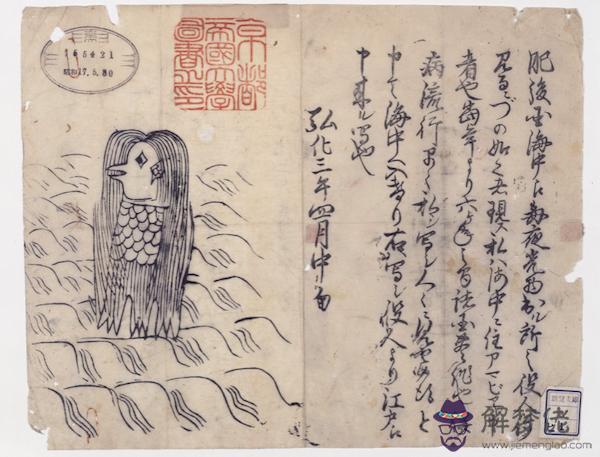 肥後国海中え毎夜光物出ル所之役人行
見るニづの如く者現ス私ハ海中ニ住アマビヱト申
者也当年より六ヶ年之間諸国豊作也併
病流行早々私ヲ写シ人々ニ見セ候得と
申て海中へ入けり右写シ役人より江戸え
申来ル写也
弘化三年四月中旬
京都
帝國大學
圖書之印
昭和17.5.30
解夢佬
www.jiemenglao.com